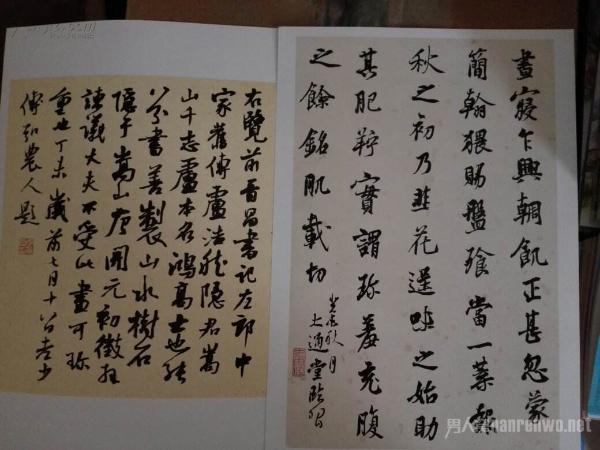 晝寢乍興輖飢正甚忽蒙
簡翰猥賜盤飧當一葉報
秋之初乃韭花逞味之始助
其肥羜實謂珍羞充腹
之餘銘肌載切
大通堂臨習
右覽前晉昌書記左郎中
家舊傳盧浩然隱居嵩
山十志盧本名鴻高士也能
八分書善製山水樹石
隱于嵩山唐開元初徵拜
諫議大夫不受此畫可珍
重也丁未歲前七月十八日老少
傅弘農人題
男人窝nanrenwo.net